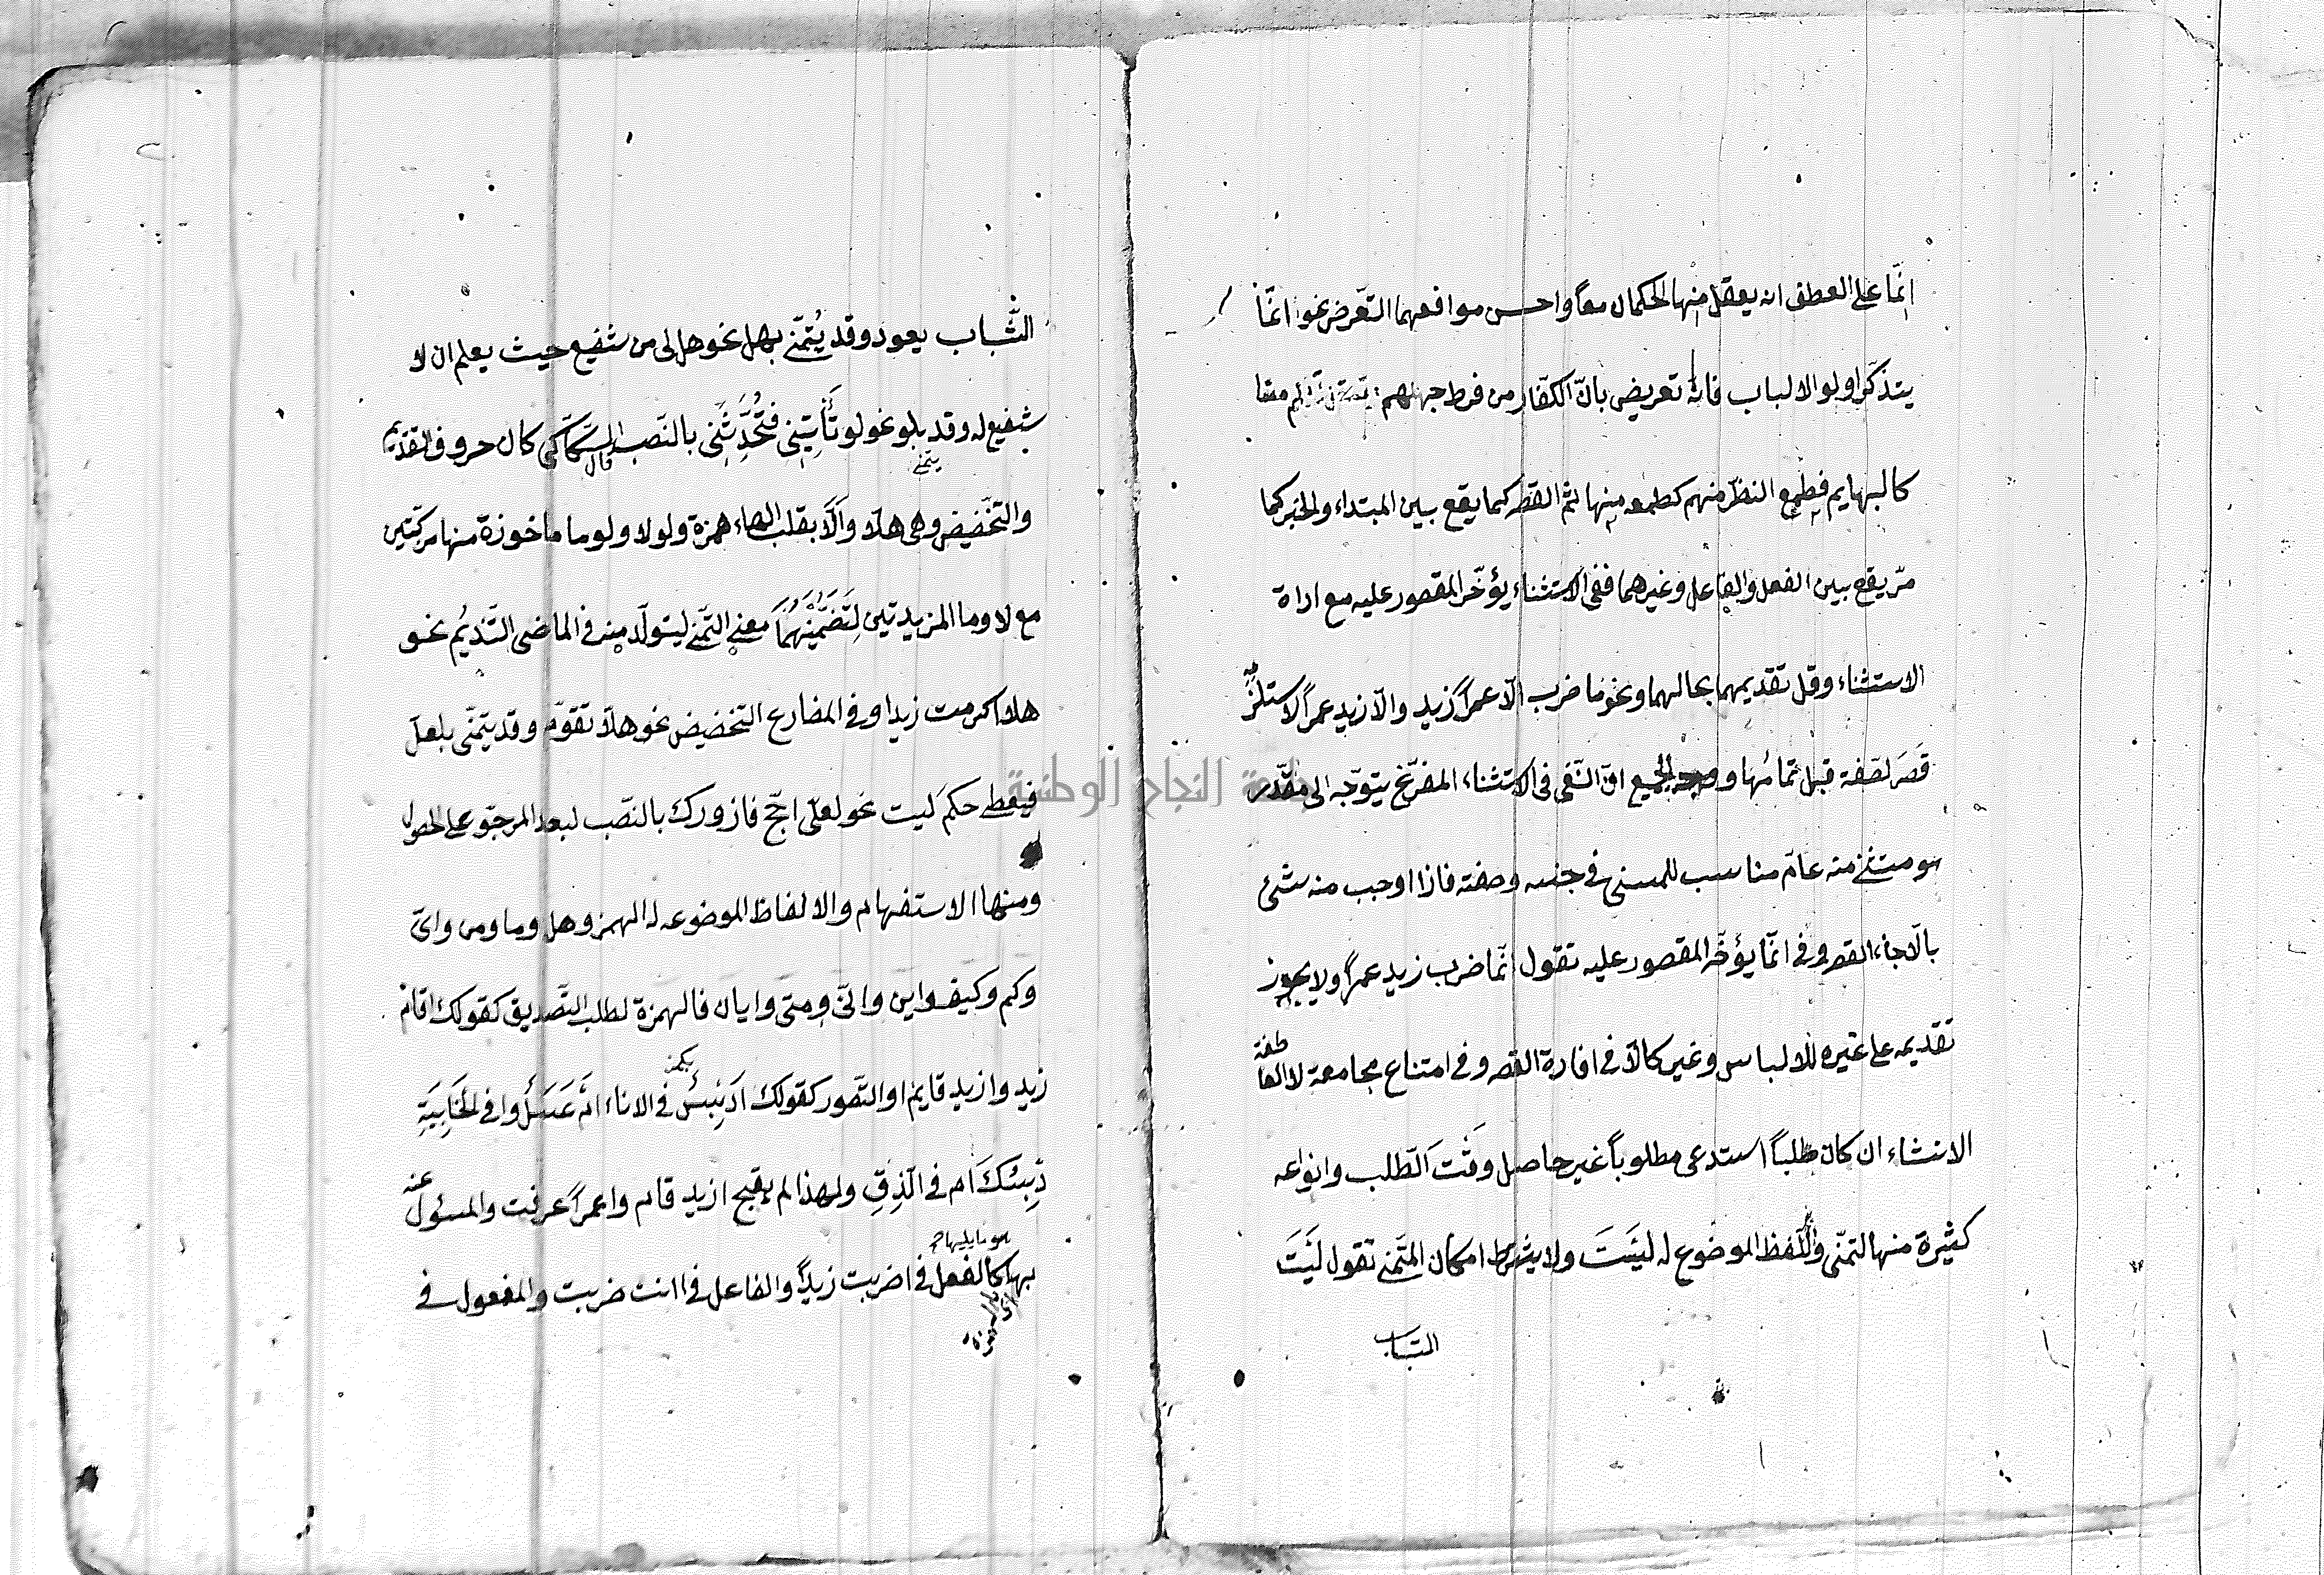 انّما على العطف انه يعقل منها الحكمان معاً واحسن مواقعهما التعّرض نحو انّما
يتذكّر اولو الالباب فانه تعريض بانّ الكفّار من فرط جهلهم
كالبهايم فطمع النظر منهم كطمعه منها ثم القصر كما يقع بين المبتداء والخبر كما
مرّ يقع بين الفعل والفاعل وغيرهما ففى الاستثناء يؤخّر المقصور عليه مع اداة
الاستثناء وقل تقديمهما بحالهما ونحو ما ضرب الّا عمراً زيد والّا زيد عمراً لاستلزامه
قَصَر لصّفة قبل تمامُها ووجه الجميع انّ النّفى فى الاستثناء المفرّغ يتوّجه الى مقدّر
هو مستثنى منه عامّ مناسب للمستثنى فى جنسه وصفته فاذا اوجب منه شئ
بالّا جاء القصر وفى انّما يؤخّر المقصور عليه تقول انّما ضرب زيد عمراً ولا يجوز
تقديمه على غيره للالباس وغير كالّا فى افادة القصر وفى امتناع مجامعة لا العاطفة
الانشاء ان كان طلباً استدعى مطلوباً غير حاصل وقت الّطلب وانواعه
كثيرة منها التمنّى والّلفظ الموضوع له لَيتَ ولا يشترط امكان المتّمنى تقول لَيتَ
الشباب
الشّباب يعود وقد يُتمّنى بهل نحو هل لى من شفيع حيث يعلم ان لا
شفيع له وقد بلو نحو لو تأتينِى فتُحدّثَنى بالنّصب قال السّكاكى كان حروف التقديم
يتمنى
والتخضيض وهى هلّا والّا بقلب الهاء همزة ولولا ولوما ماخوذة منها مركّبتين
مع لا وما المزيدتين لِتَضَمّنِهُمَا معنى التّمنى ليتولّد منه فى الماضى التّنديُم نحو
هلّا اكرمت زيدا وفى المضارع التخضيض نحو هلّا تقوم وقد يتمّنى بلعل
فيعطى حكم ليت نحو لعلّى احجّ فازورك بالنصّب لبعد المرجّو على الحصول
ومنها الاستفهام والالفاظ الموضوعه له الهمز وهل وما ومن واىّ
وكم وكيف واين وانّى ومتى وايان فالهمزة لطلب التّصديق كقولك اقام
زيد وازيد قايم او التّصور كقولك اَدَبِسُ فى الاناء ام عَسَلُ وافى الخَابِيَةِ
دِبسُكَ ام فى الّزقِ ولهذا لم يقبح ازيد قام واعمراً عرفت والمسئول عنه
هو ما يليها
بها كالفعل فى اضربت زيداً والفاعل فى اانت ضربت والمفعول فى